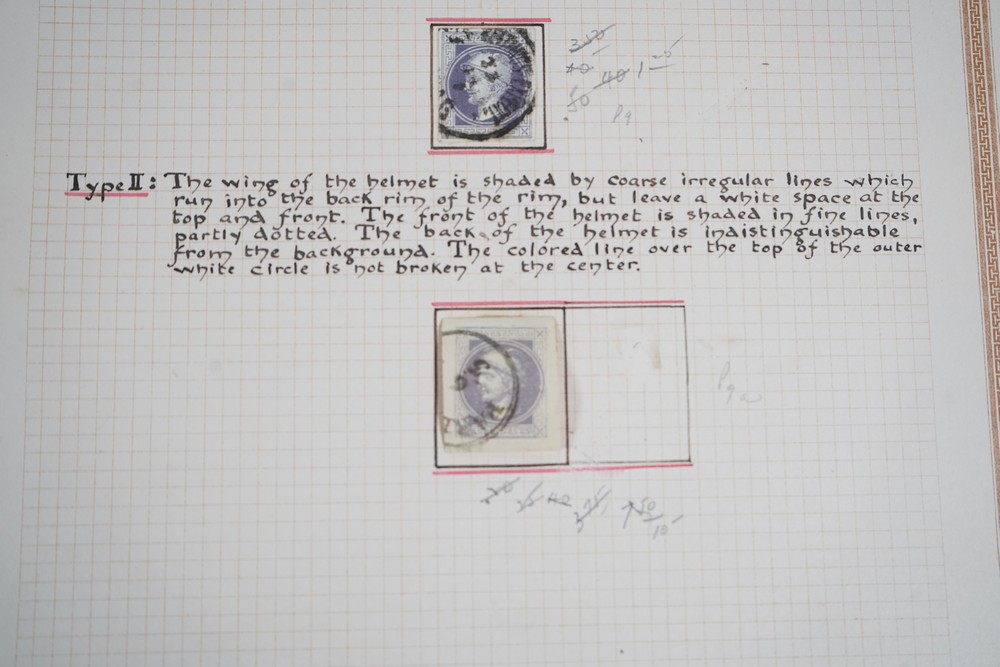 40 1
50
P9
Type II: The wing of the helmet is shaded by coarse irregular lines which
run into the back rim of the rim, but leave a white space at the
top and front. The front of the helmet is shaded in fine lines,
partly dotted. The back of the helmet is indistinguishable
from the background. The colored line over the top of the outer
white circle is not broken at the center.
P9a